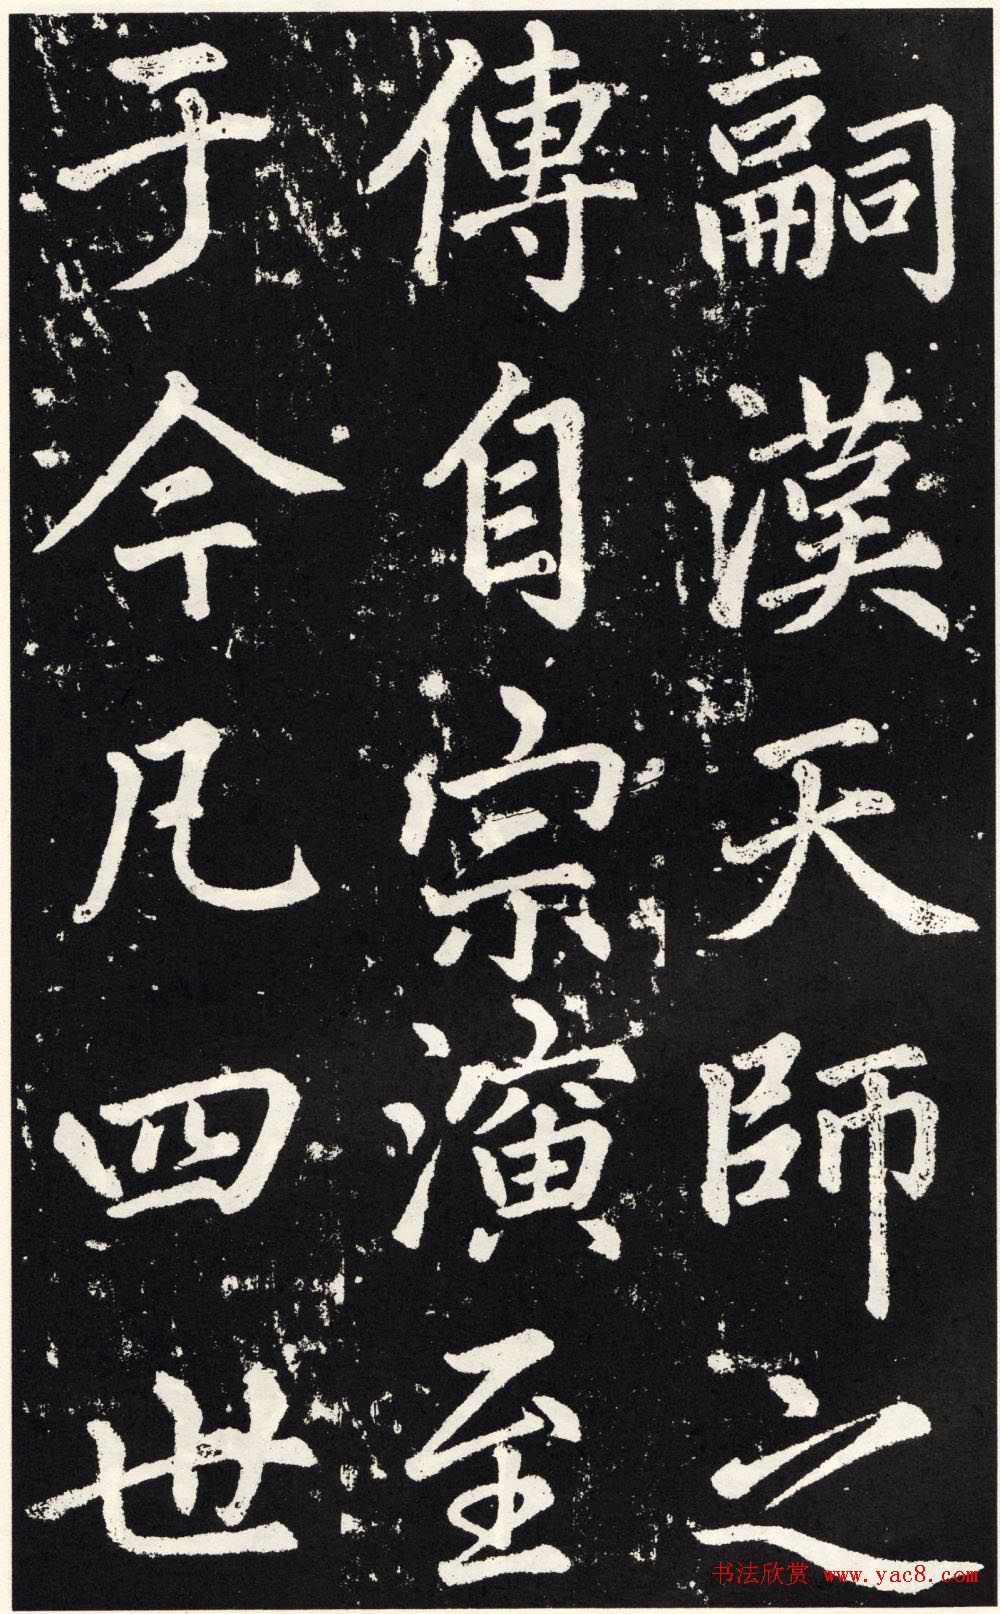 嗣漢天師之
傳自宗演至
于今凡四世
书法欣赏 www.yac8.com